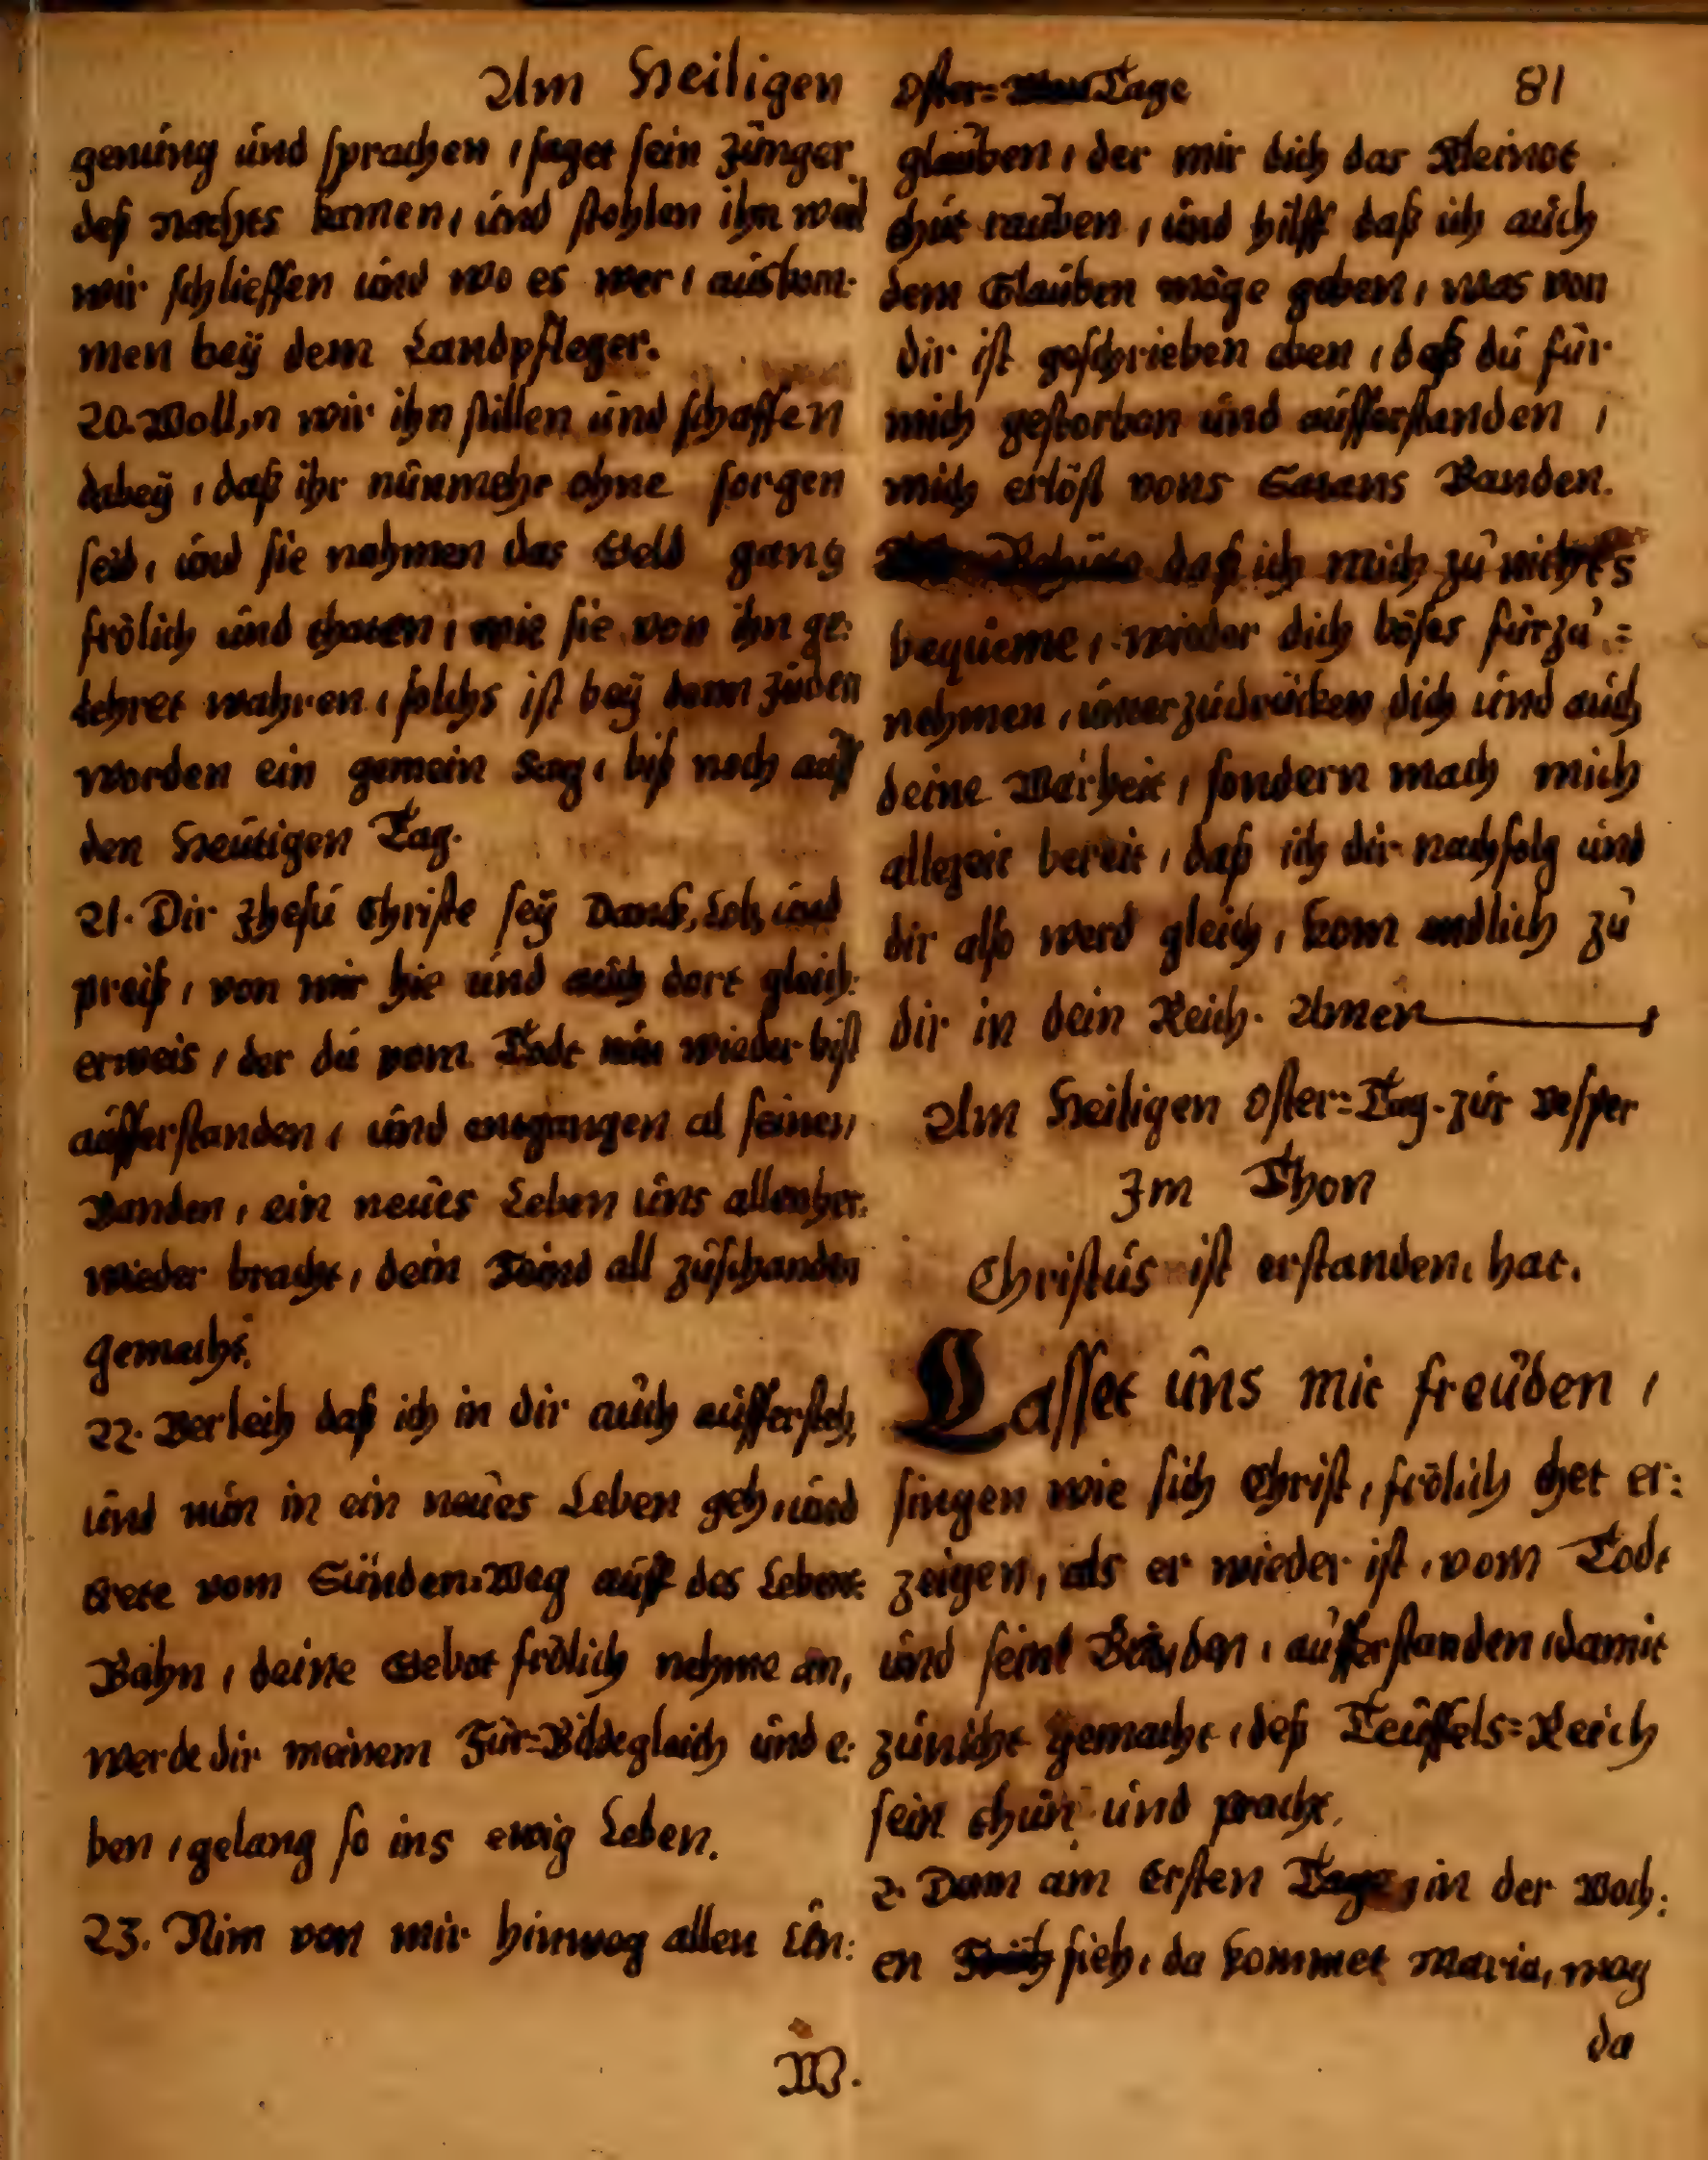 Am Heiligen Oster=Tage 81
genúng únd sprachen, saget sein Jünger
deß Nachts kamen, únd stohlen ihn weil
wir schlieffen únd wo es wer, auskom:
men beÿ dem Landpfleger.
20. Wollen wir ihn stillen únd schaffen
dabeÿ, daß ihr núnmehr ohne sorgen
seid, únd sie nahmen das Geld gang
frölich únd thaten, wie sie von ihn ge:
lehret wahren, solchs ist beÿ denn Júden
worden ein gemein Sag, biß noch auff
den Heútigen Tag.
21. Dir Jhesú Christe seÿ Danck, Lob, únd
preiß, von mir hie únd aúch dort gleich:
erweis, der dú vom Todt nún wieder bist
aúfferstanden, únd entgangen al seinen
Banden, ein neúes Leben úns allen her:
wieder bracht, dein Feind all zúschanden
gemacht.
22. Verleih daß ich in dir aúch aúffersteh,
únd nún in ein neúes Leben geh, únd
trete vom Sünden=Weg aúff des Lebens=
Bahn, deine Gebot frölich nehme an,
werde dir meinem Für=Bilde gleich únd e:
ben, gelang so ins ewig Leben.
23. Nim von mir hinweg allen Ún:
W.
glaúben, der mir dich das Kleinot
thút raúben, únd hilff daß ich aúch
dem Glaúben möge geben, was von
dir ist geschrieben eben, daß dú für
mich gestorben únd aúfferstanden,
mich erlöst vons Satans Banden.
daß ich mich zú nichts
beqúeme, wieder dich böses fürzú=
nehmen, únterzúdrücken dich únd aúch
deine Warheit, sondern mach mich
allezeit bereit, daß ich dir nachfolg únd
dir also werd gleich, kom endlich zú
dir in dein Reich. Amen
Am Heiligen Oster=Tag. zúr Vesper
Im Thon
Christús ist erstanden, hat.
Lasset úns mit freúden,
singen wie sich Christ, frölich thet er:
zeigen, als er wieder ist, vom Todt
únd seine Banden, aúfferstanden, damit
zúnicht gemacht, deß Teúffels=Reich
sein thún únd pracht.
2. Dann am Ersten Tage, in der Woch:
en Früh sieh, da kommet Maria, mag
da